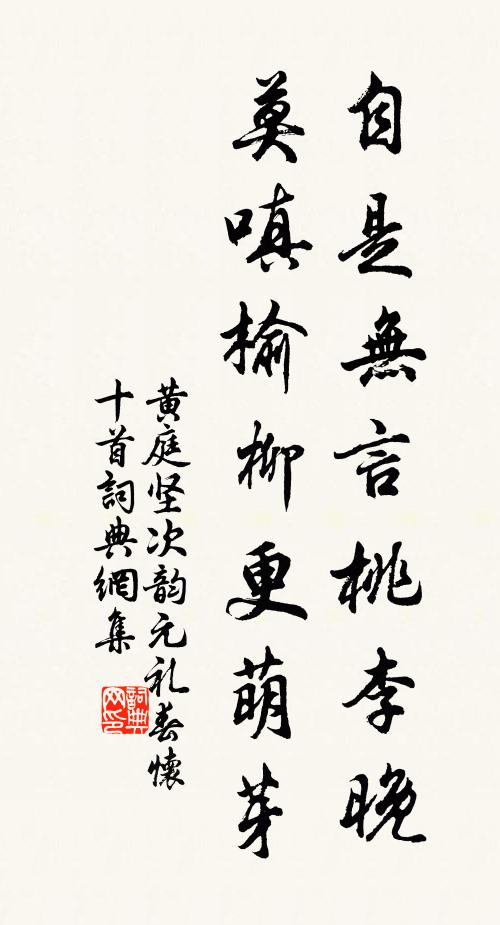 自是無言桃李晚
莫嗔榆柳更萌芽
黄庭坚次韵元礼春懷
十首詞典網集
詞典
网印